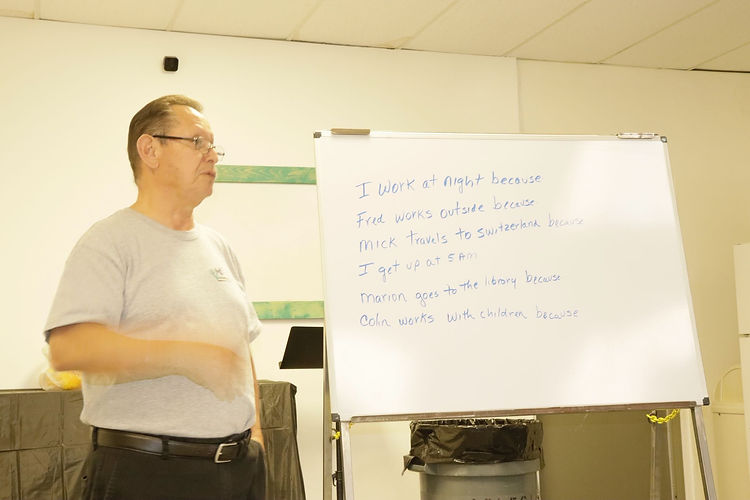 I work at night because
Fred works outside because
Mick travels to Switzerland because
I get up at 5 AM
Marion goes to the library because
Colin works with children because